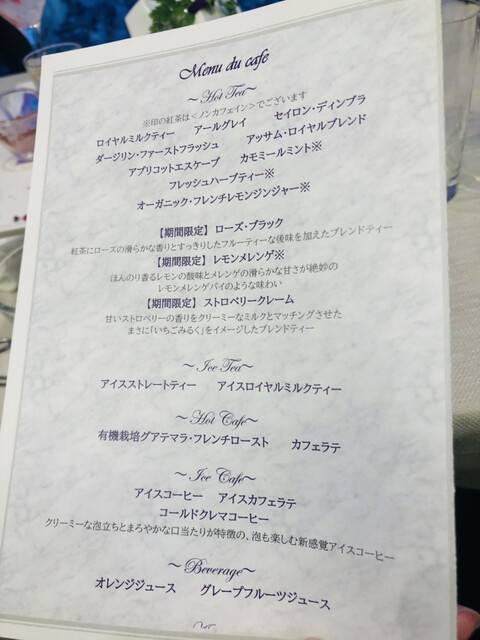 Menu du cafe
～Hot Tea～
※印の紅茶は＜ノンカフェイン＞でございます
ロイヤルミルクティー　アールグレイ　セイロン・ディンブラ
ダージリン・ファーストフラッシュ　アッサム・ロイヤルブレンド
アプリコットエスケープ　カモミールミント※
フレッシュハーブティー※
オーガニック・フレンチレモンジンジャー※
【期間限定】ローズ・ブラック
紅茶にローズの滑らかな香りとすっきりしたフルーティーな後味を加えたブレンドティー
【期間限定】レモンメレンゲ※
ほんのり香るレモンの酸味とメレンゲの滑らかな甘さが絶妙の
レモンメレンゲパイのような味わい
【期間限定】ストロベリークレーム
甘いストロベリーの香りをクリーミーなミルクとマッチングさせた
まさに「いちごみるく」をイメージしたブレンドティー
～Ice Tea～
アイスストレートティー　アイスロイヤルミルクティー
～Hot Cafe～
有機栽培グアテマラ・フレンチロースト　カフェラテ
～Ice Cafe～
アイスコーヒー　アイスカフェラテ
コールドクレマコーヒー
クリーミーな泡立ちとまろやかな口当たりが特徴の、泡も楽しむ新感覚アイスコーヒー
～Beverage～
オレンジジュース　グレープフルーツジュース